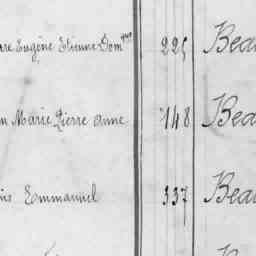 rre Eugène Etienne Dom^que 225 Beau
n Marie Pierre Anne 148 Beau
is Emmanuel 337 Beau